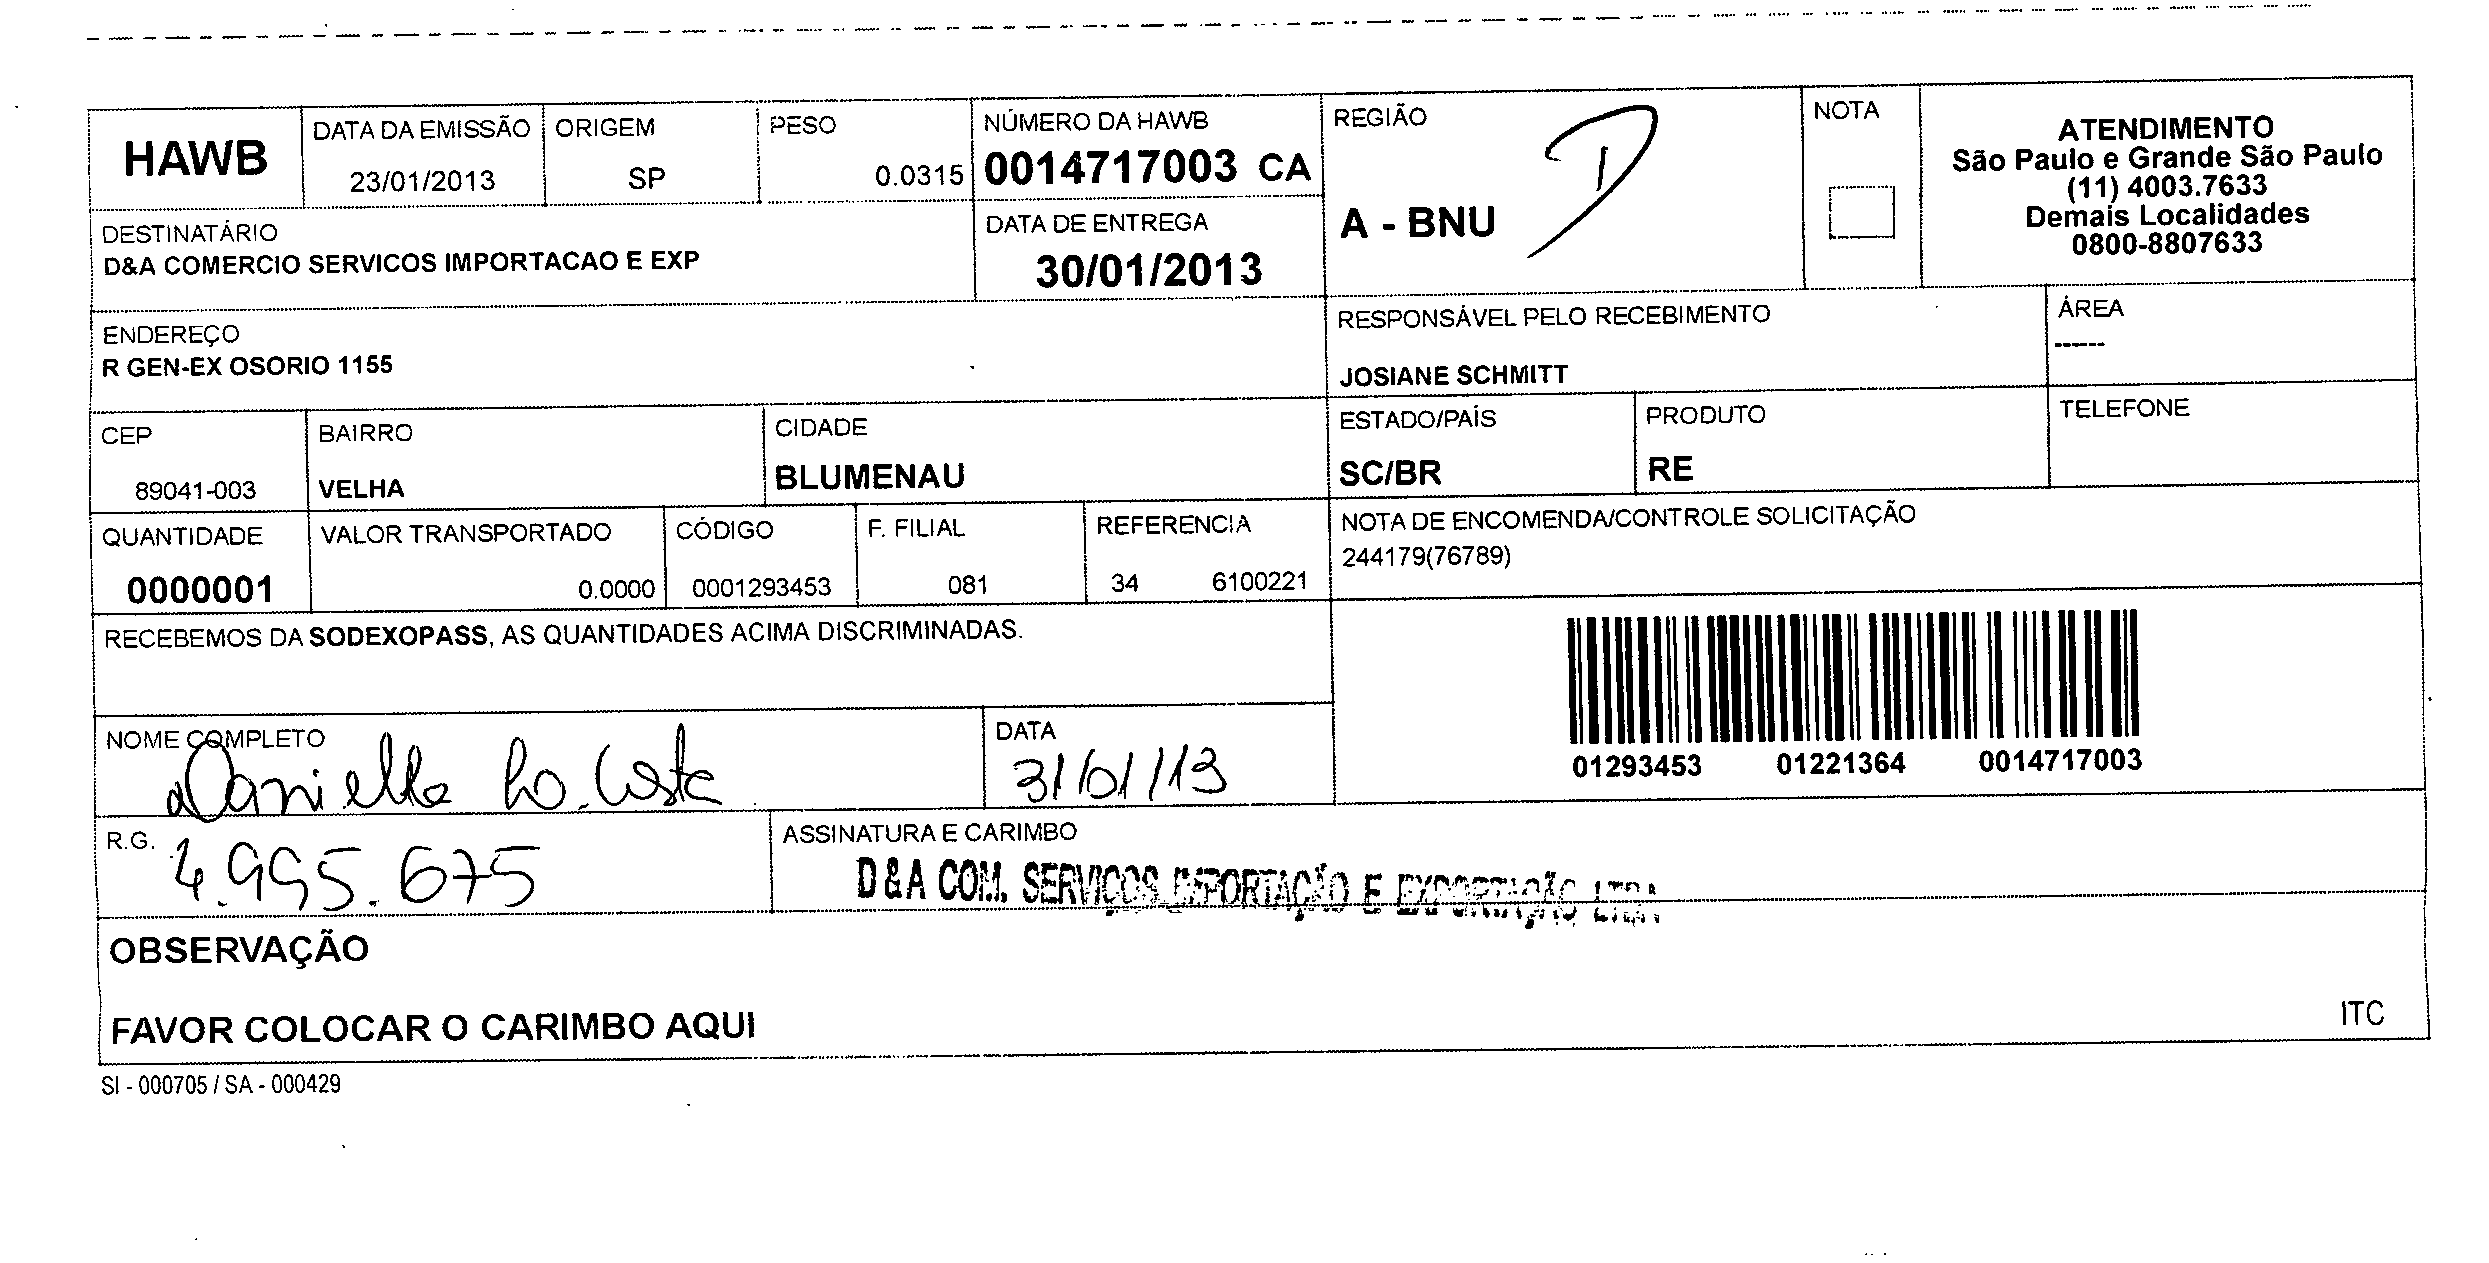 HAWB
DATA DA EMISSÃO
23/01/2013
ORIGEM
SP
PESO
0.0315
NÚMERO DA HAWB
0014717003 CA
REGIÃO
A - BNU
D
NOTA
ATENDIMENTO
São Paulo e Grande São Paulo
(11) 4003.7633
Demais Localidades
0800-8807633
DESTINATÁRIO
D&A COMERCIO SERVICOS IMPORTACAO E EXP
DATA DE ENTREGA
30/01/2013
ENDEREÇO
R GEN-EX OSORIO 1155
RESPONSÁVEL PELO RECEBIMENTO
JOSIANE SCHMITT
ÁREA
------
CEP
89041-003
BAIRRO
VELHA
CIDADE
BLUMENAU
ESTADO/PAÍS
SC/BR
PRODUTO
RE
TELEFONE
QUANTIDADE
0000001
VALOR TRANSPORTADO
0.0000
CÓDIGO
0001293453
F. FILIAL
081
REFERENCIA
34 6100221
NOTA DE ENCOMENDA/CONTROLE SOLICITAÇÃO
244179(76789)
RECEBEMOS DA SODEXOPASS, AS QUANTIDADES ACIMA DISCRIMINADAS.
01293453 01221364 0014717003
NOME COMPLETO
Danielle Costa
DATA
31/01/13
R.G.
4.995.675
ASSINATURA E CARIMBO
D & A COM. SERVIÇOS IMPORTAÇÃO E EXPORTAÇÃO LTDA
OBSERVAÇÃO
FAVOR COLOCAR O CARIMBO AQUI
ITC
SI - 000705 / SA - 000429